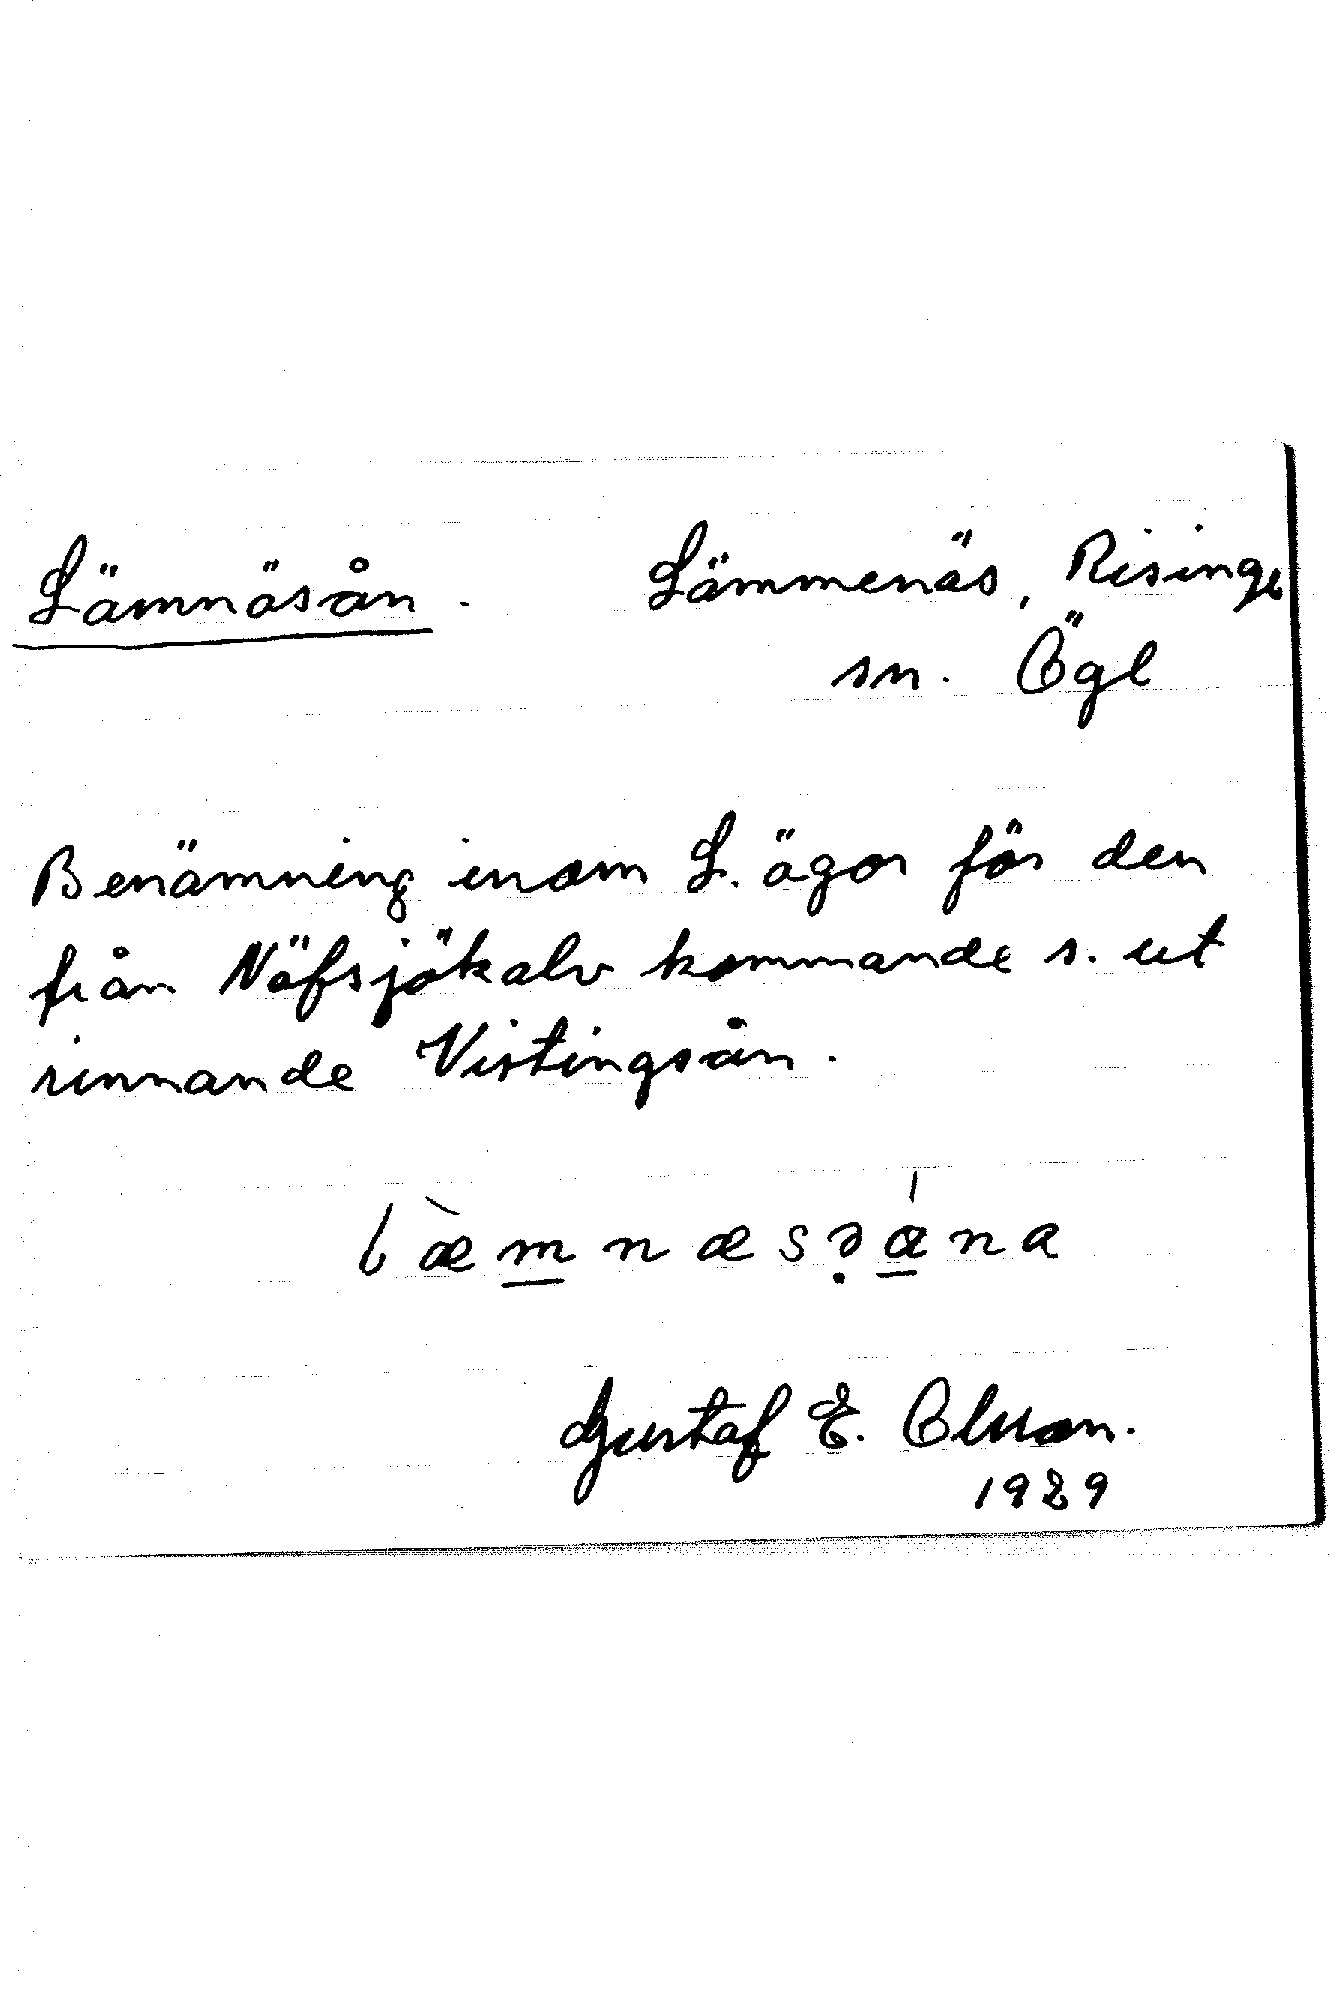 Lämnäsån. Lämmenäs, Risinge
sn. Ögl
Benämning inom L. ägor för den
från Näfsjökalv kommande s. ut
rinnande Vistingsån.
Gustaf E. Olsson.
1929